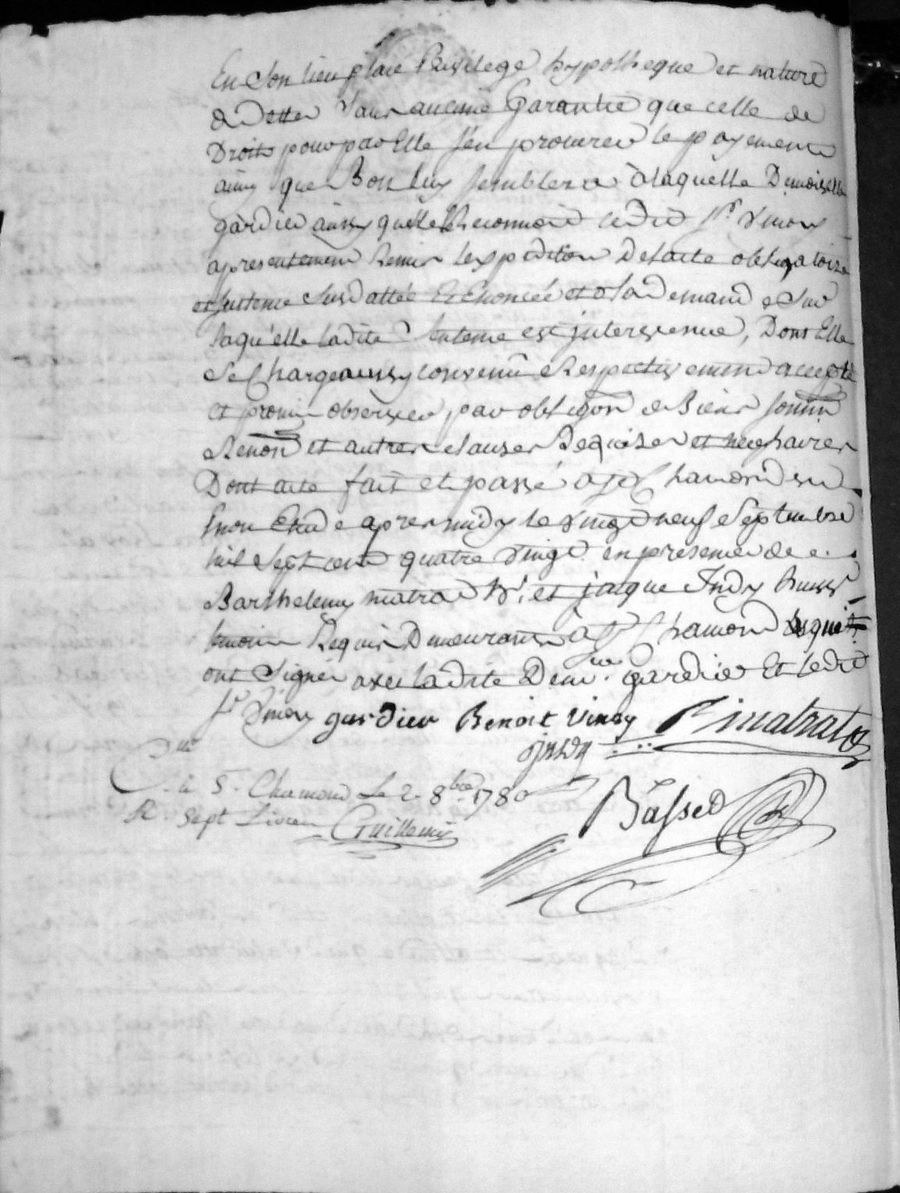 En Son lieu place Privilege hypotheque et nature
de dette Sans aucune Garantie que celle de
Droits pour par Elle s'en procurer le payement
ainsy que Bon luy semblera a laquelle Demoiselle
gardier ainsy quelle le Reconnoit ledit Sr. Vmoy
a presentement Remis l'expedition de laite obligatoire
et sentence Susdattée et Enoncée et la demande Sur
laquelle ladite Sentence est intervenue, Dont Elle
Se Charge ainsy convenu Respectivement accepté
et promis observer par obligon de Biens Soumin
Renon et autres clauses Requises et necessaires
Dont acte fait et passé a St Chamond en
mon Etude apres midy le vingt neuf Septembre
mil Sept cent quatre vingt en presence de
Barthelemy matrat et jacque Indy
temoins Requis Demeurants a St Chamond Lesquels
ont Signé avec ladite Demlle. gardier Et ledit
Sr. Vmoy gardier Benoit Vinoy B matrat
jndy
C. à S. Chamond Le 2 8bre 1780
R Sept Livres Guillemin
Basset